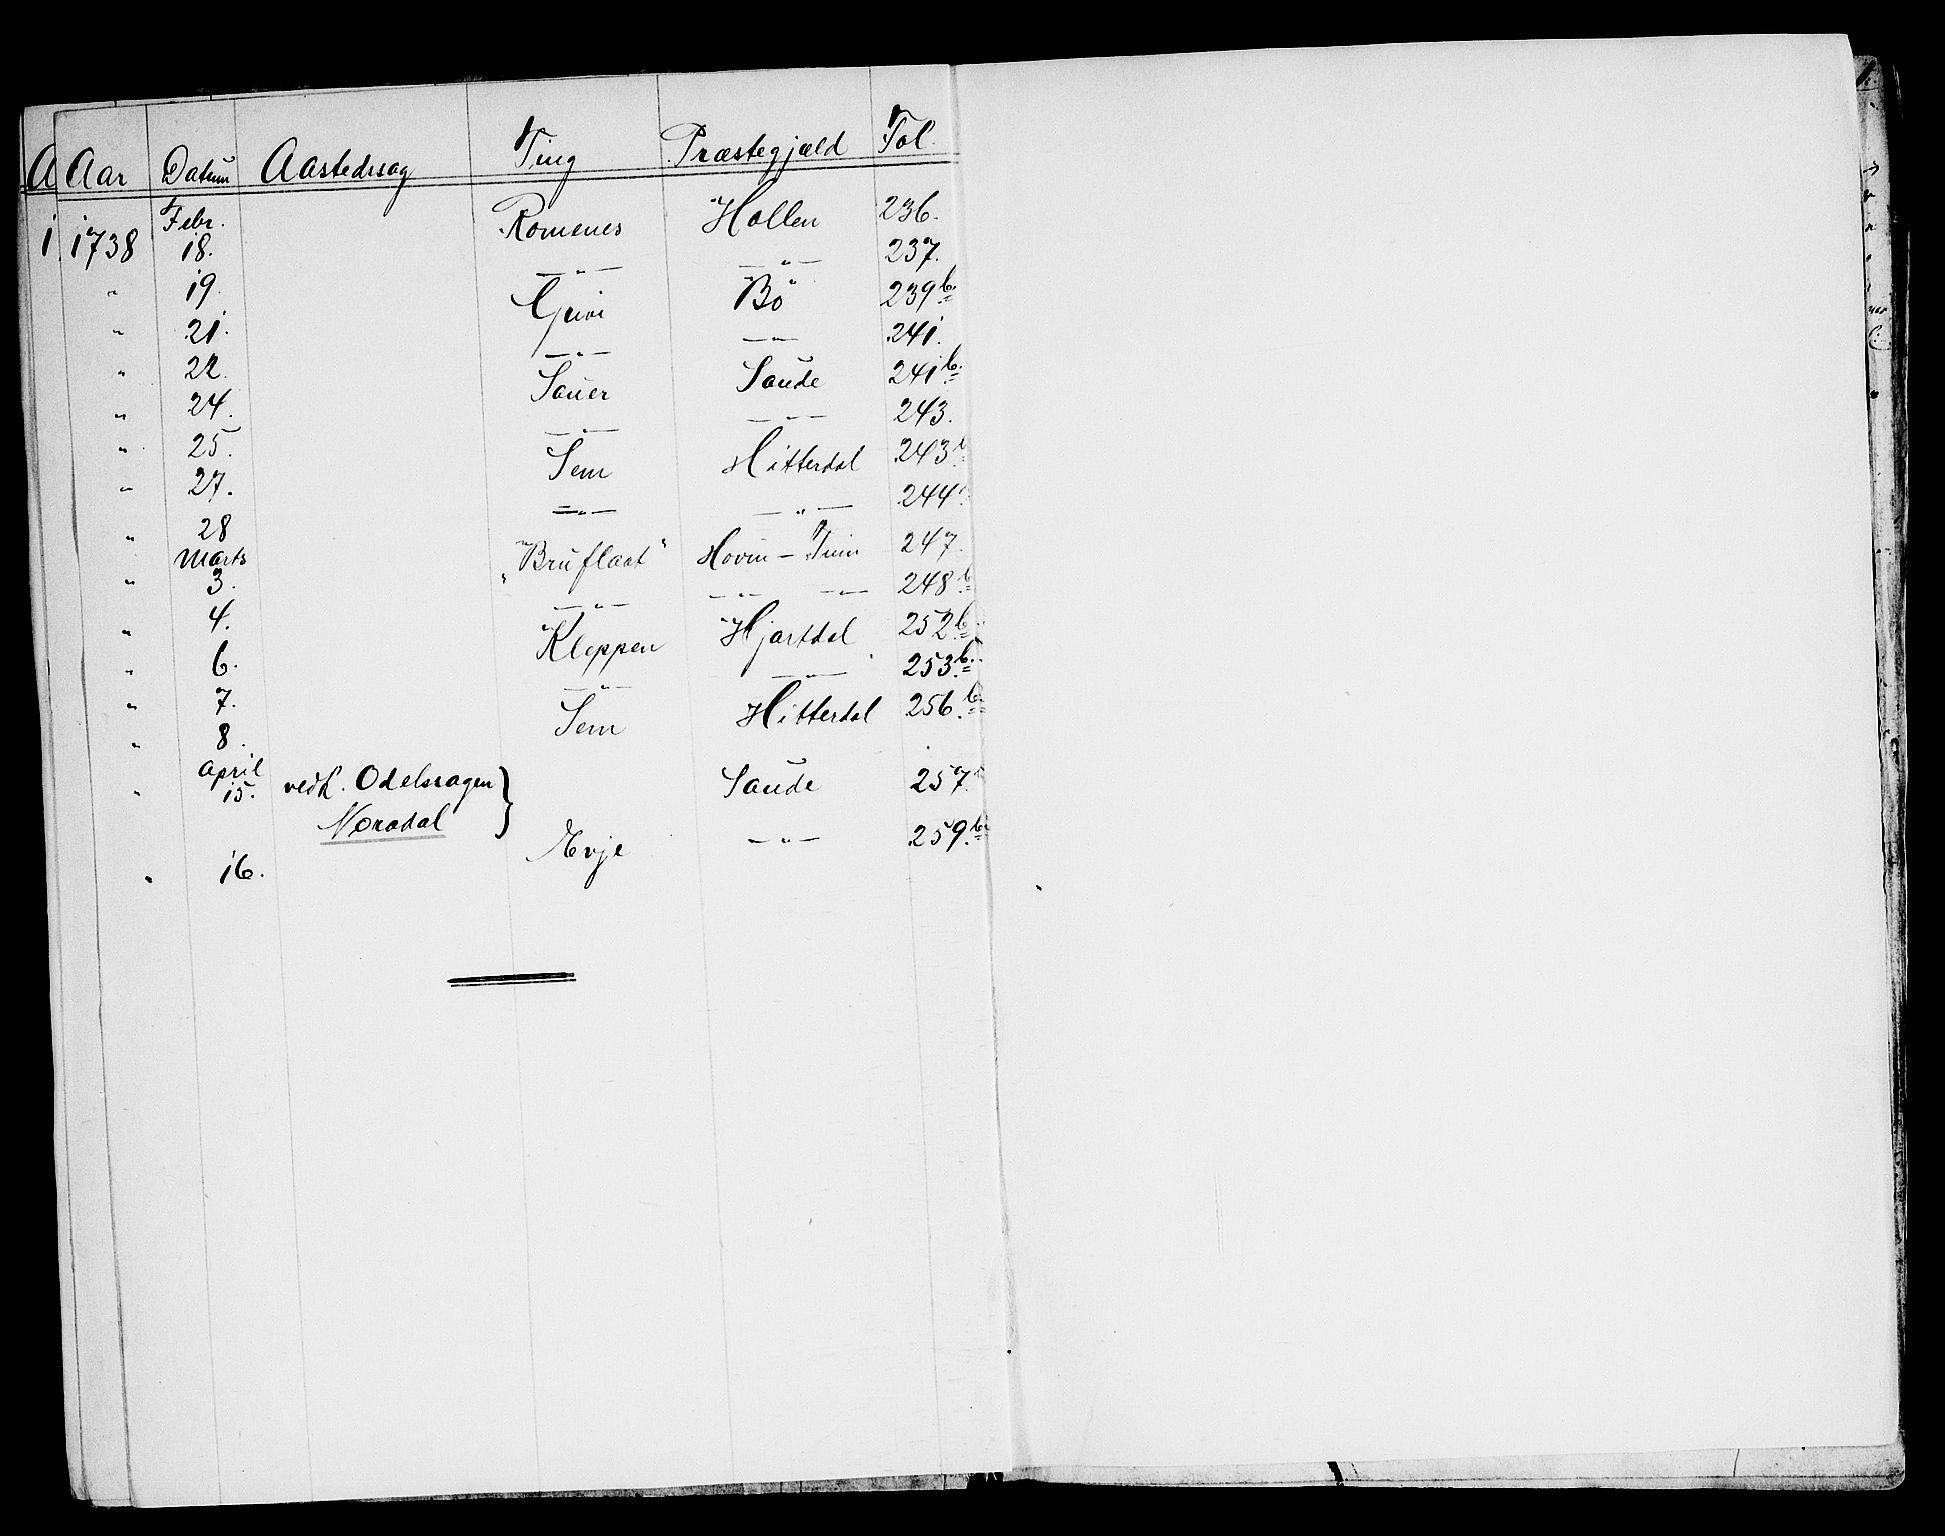 A Aar Datum Aastedssag Ting Præstegjæld Fol.
1 1738 Febr. 18. Romenes Hollen 236.
" 19. —"— —"— 237.
" 21. Grivi Bö 239 b.
" 22. —"— —"— 241.
" 24. Sauer Saude 241 b.
" 25. —"— —"— 243.
" 27. Sem Hitterdal 243 b
" 28 —"— —"— 244
" Marts 3. "Bruflaat" Hovin — Tuin 247.
" 4. —"— —"— —"— 248 b
" 6. Kleppen Hjartdal 252 b.
" 7. —"— —"— 253 b.
" 8. Sem Hitterdal 256. b.
" April 15. vedk. Odelssagen } Saude 257.
Noradal
" 16. Evje —"— 259. b.